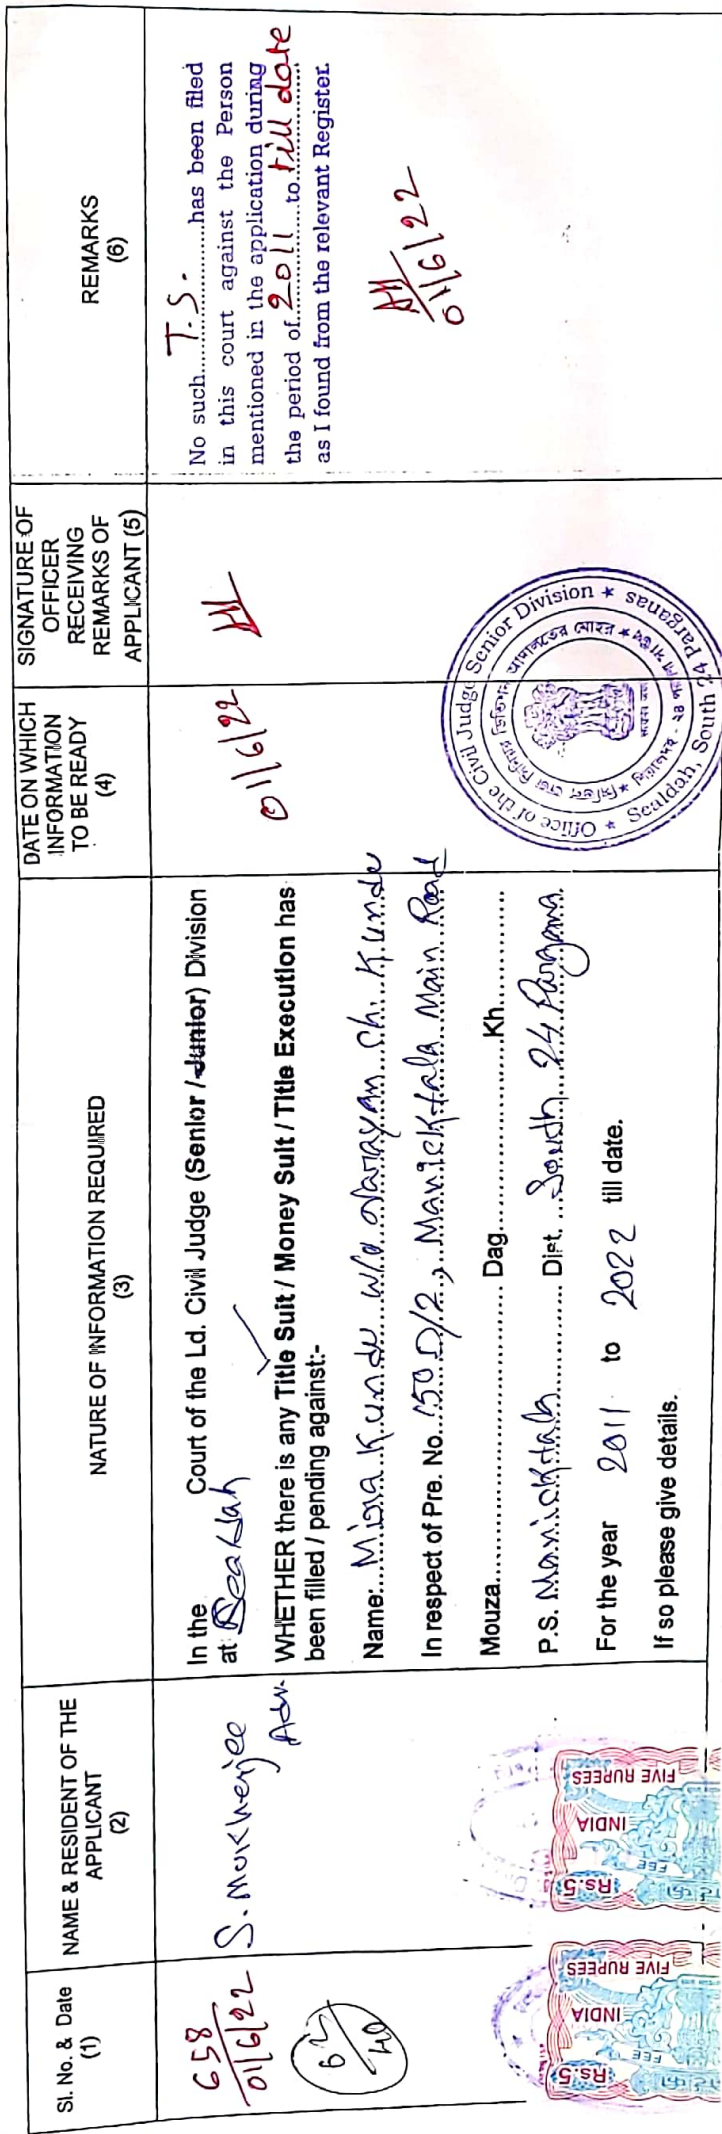 Sl. No. & Date
(1)
NAME & RESIDENT OF THE
APPLICANT
(2)
NATURE OF INFORMATION REQUIRED
(3)
DATE ON WHICH
INFORMATION
TO BE READY
(4)
SIGNATURE OF
OFFICER
RECEIVING
REMARKS OF
APPLICANT (5)
REMARKS
(6)
658
01/6/22
S. Mukherjee
Adv.
In the Court of the Ld. Civil Judge (Senior / Junior) Division
at Sealdah
WHETHER there is any Title Suit / Money Suit / Title Execution has
been filled / pending against:-
Name:... Mira Kundu w/o Narayan Ch. Kundu
In respect of Pre. No... 150 D/2, Manicktala Main Road
Mouza.......................... Dag.......................Kh................
P.S. Manicktala............ Dist. ...South 24 Pargana.
For the year 2011 to 2022 till date.
If so please give details.
01/6/22
No such......T.S.......has been filed
in this court against the Person
mentioned in the application during
the period of...2011...to...till date
as I found from the relevant Register.
01/6/22
Office of the Civil Judge Senior Division ★ Sealdah, South 24 Parganas ★
Rs.5
INDIA
FEE
FIVE RUPEES
Rs.5
INDIA
FEE
FIVE RUPEES